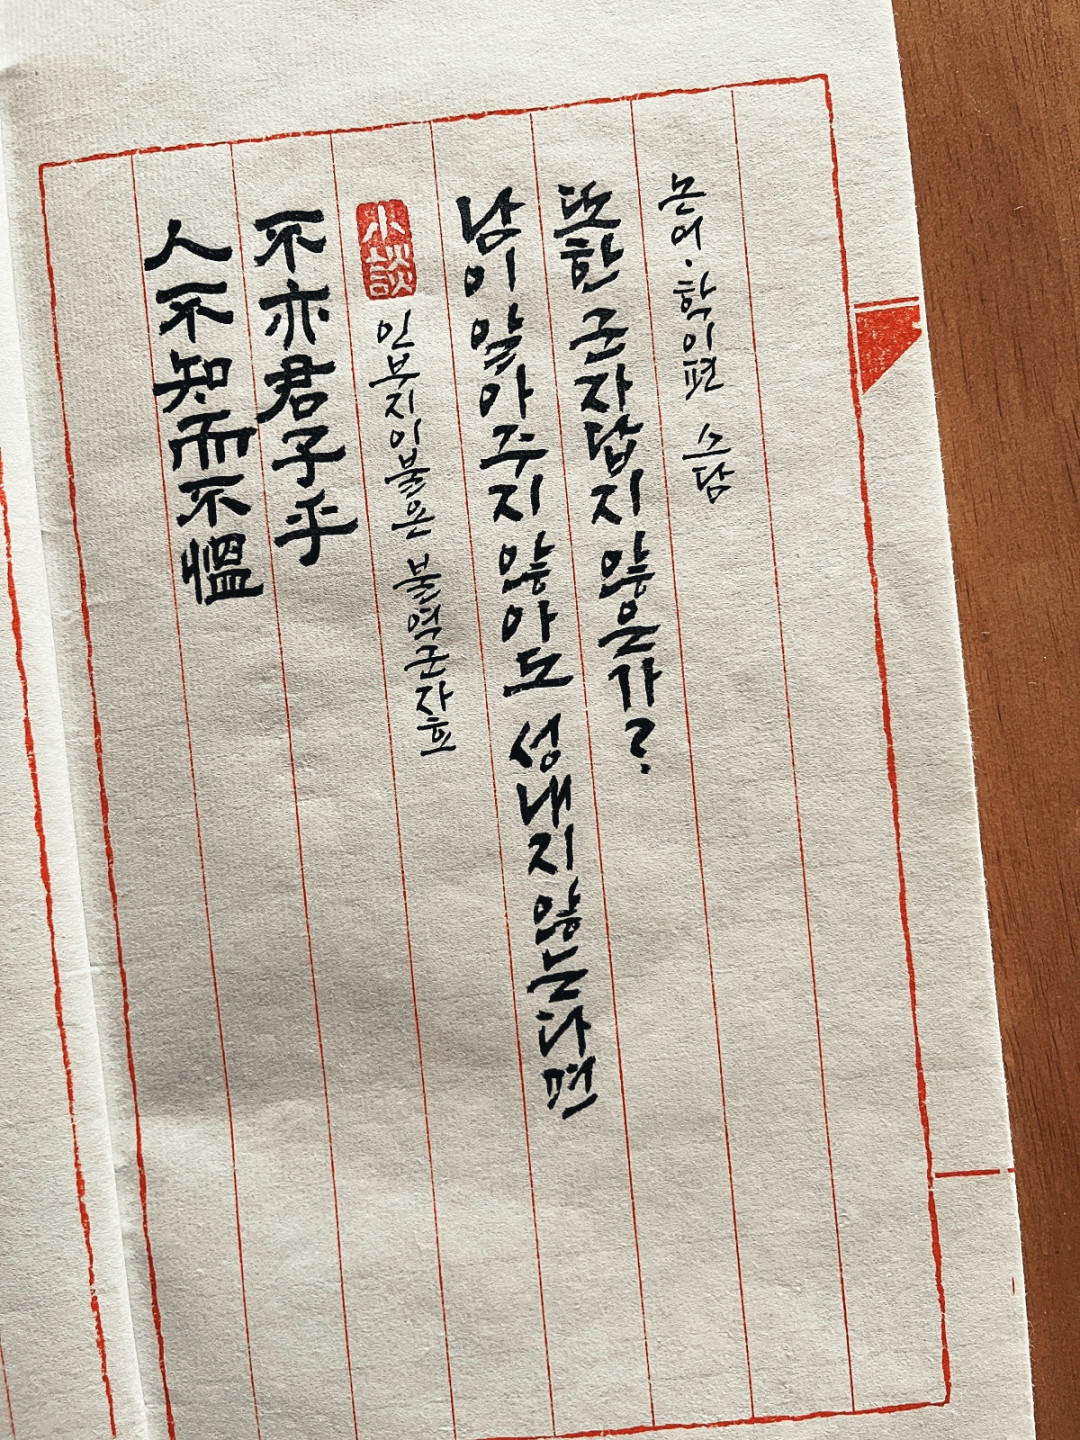 人不知而不慍
不亦君子乎
小談
인부지이불온 불역군자호
남이 알아주지 않아도 성내지 않는다면
또한 군자답지 않은가?
논어·학이편 소담